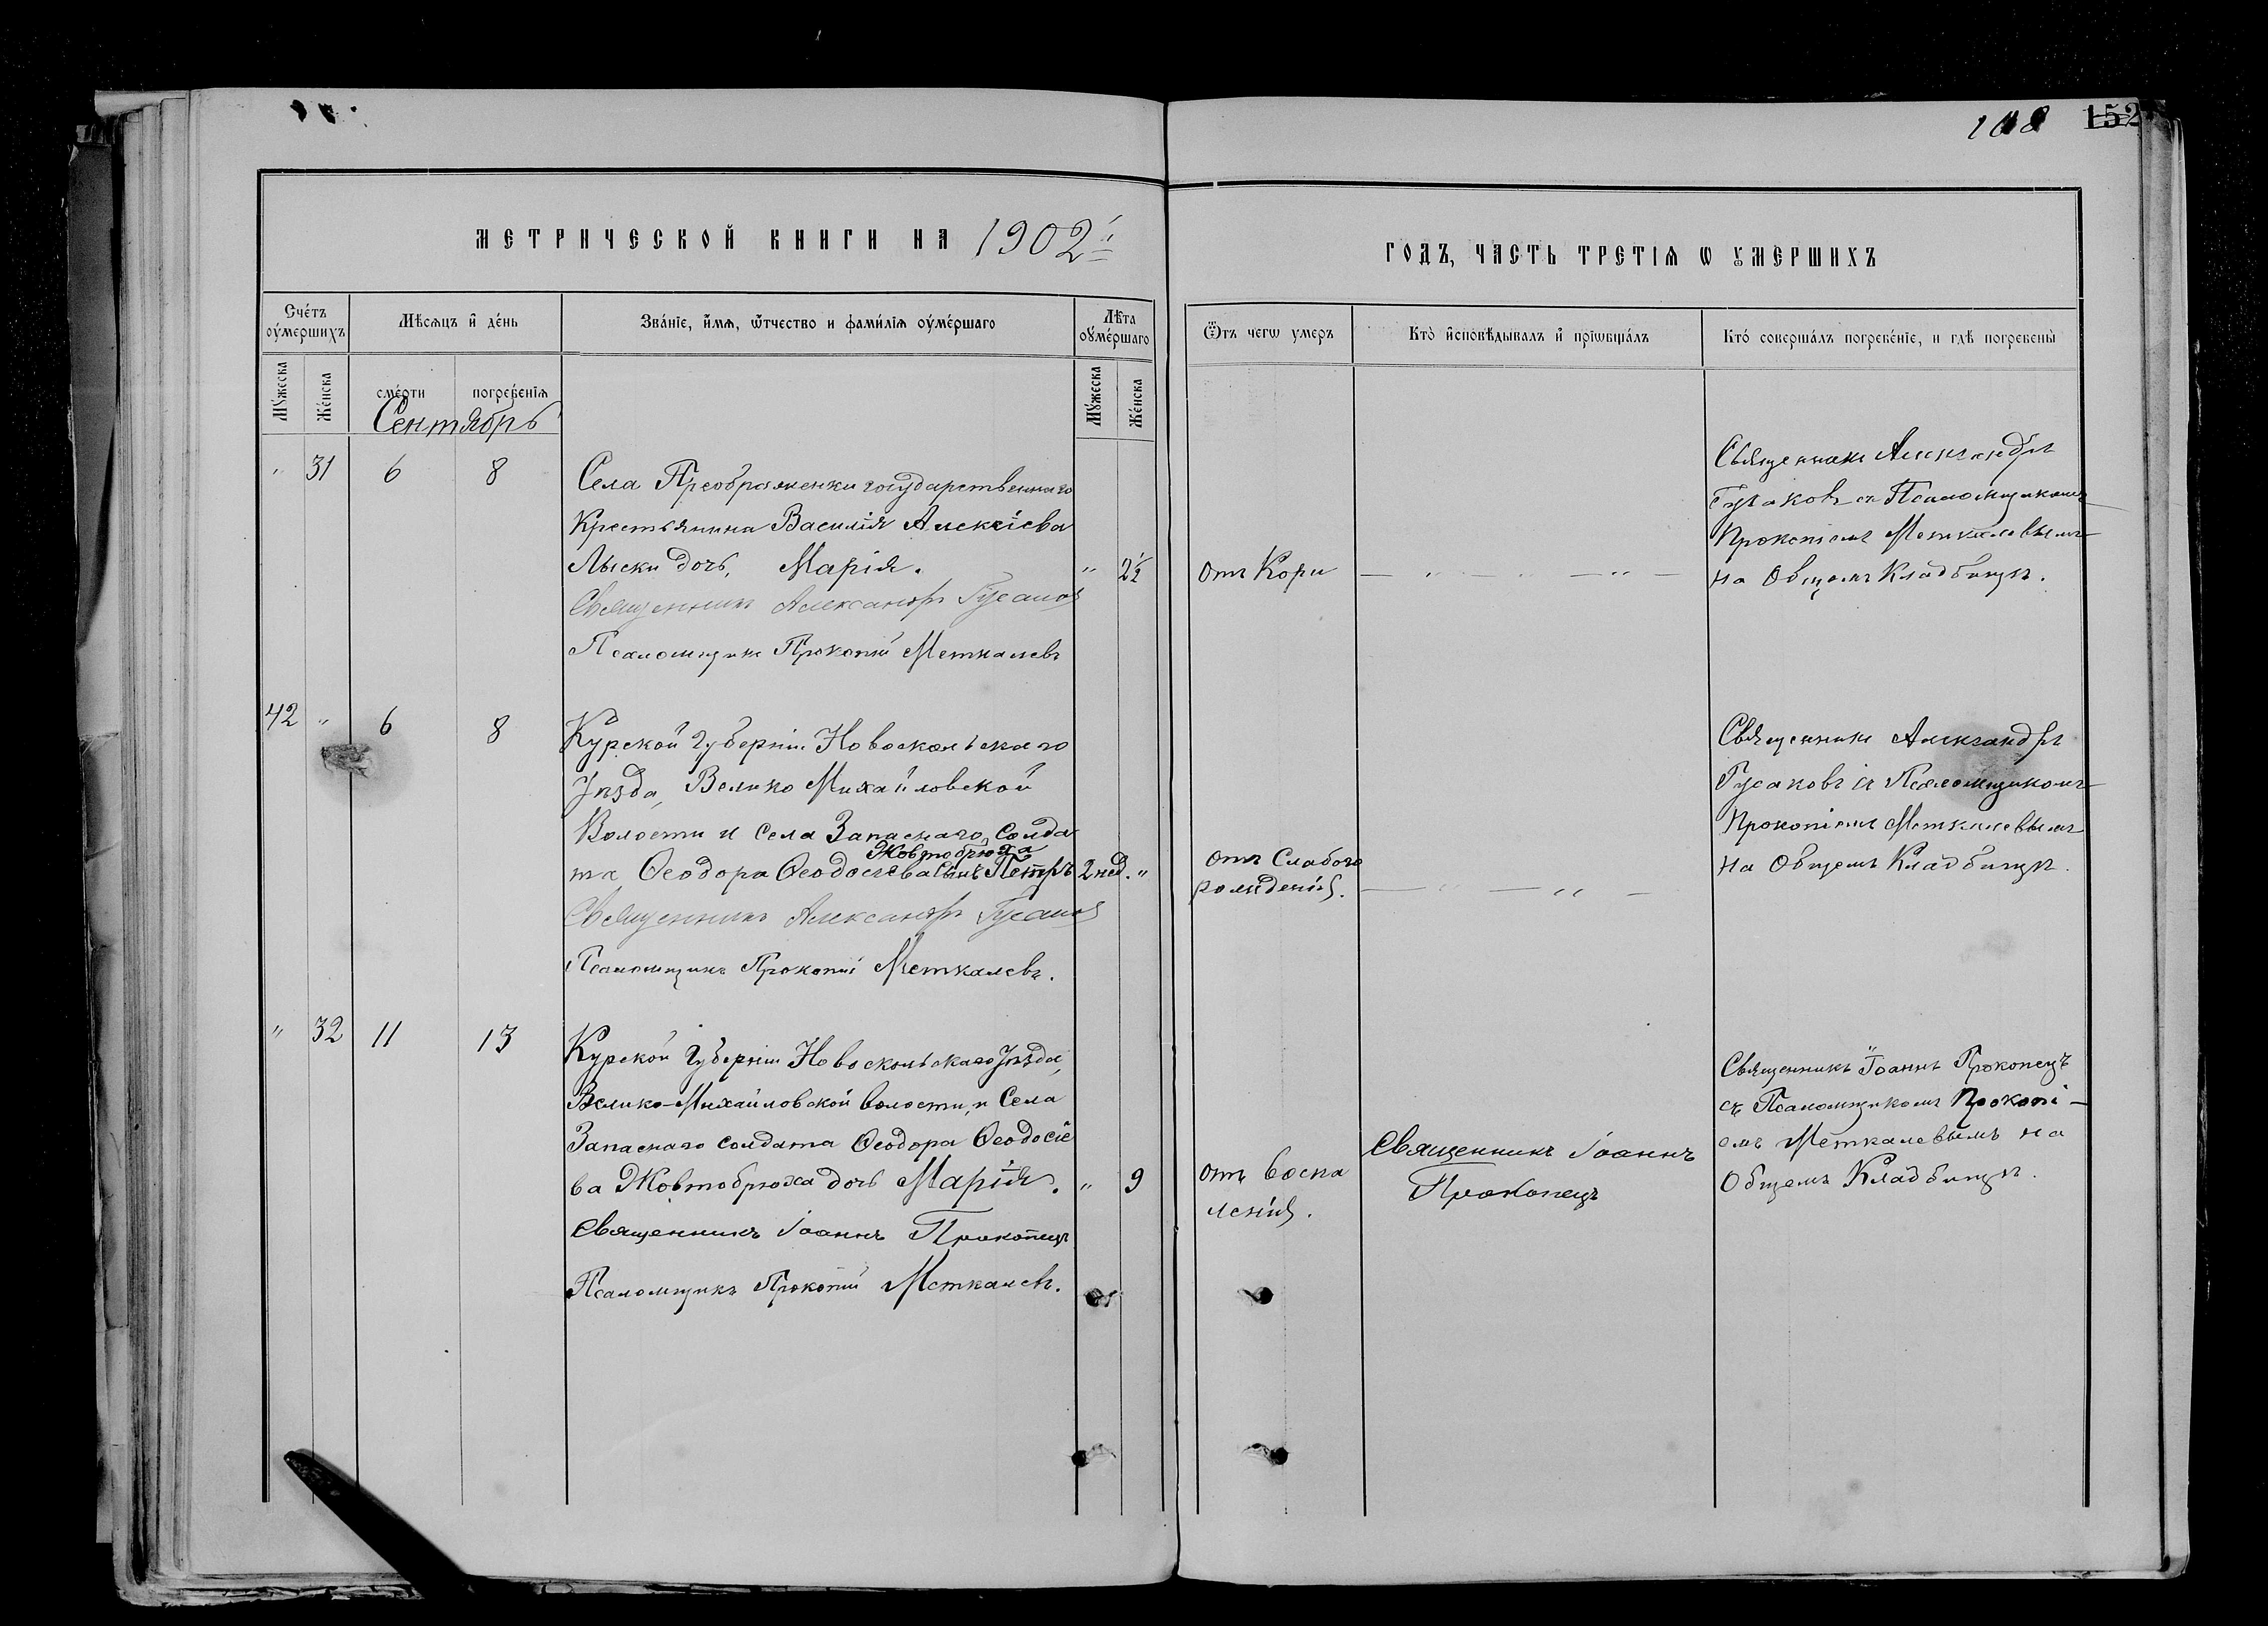 108 152
МЕТРИЧЕСКОЙ КНИГИ НА 1902й
ГОДЪ, ЧАСТЬ ТРЕТІЯ Ѡ УМЕРШИХЪ
Сче́тъ оу́мершихъ
Мѣсяцъ и де́нь
Зва́ніе, и́мя, ѿтчество и фами́лія оуме́ршаго
Лѣта оуме́ршаго
Ѿтъ чегѡ умеръ
Кто̀ исповѣ́дывалъ и пріѡбща́лъ
Кто́ соверша́лъ погребе́ніе, и гдѣ̀ погребены̀
Му́жеска
Же́нска
сме́рти
погребе́нія
Му́жеска
Же́нска
Сентябрь
" 31 6 8
Села Преображенки государственнаго
Крестьянина Василія Алексіева
Лыски дочь, Марія.
" 2½
Священникъ Александръ Гусаковъ
Псаломщикъ Прокопій Меткалевъ
отъ Кори
Священникъ Александръ
Гусаковъ съ Псаломщикомъ
Прокопіемъ Меткалевымъ
на Общемъ Кладбищѣ.
42 " 6 8
Курской Губерніи Новооскольскаго
Уѣзда, Велико Михайловской
Волости и Села Запаснаго Солда
Жовтобрюха
та Ѳеодора Ѳеодосіева Сынъ Петръ
2 нед. "
Священникъ Александръ Гусаковъ
Псаломщикъ Прокопій Меткалевъ.
отъ Слабого
рожденія.
Священникъ Александръ
Гусаковъ съ Псаломщикомъ
Прокопіемъ Меткалевымъ
на Общемъ Кладбищѣ.
" 32 11 13
Курской Губерніи Новоскольскаго Уѣзда,
Велико-Михайловской волости, и Села
Запаснаго солдата Ѳеодора Ѳеодосіе
ва Жовтобрюха дочь Марія.
" 9
Священникъ Іоаннъ Прокопецъ
Псаломщикъ Прокопій Меткалевъ.
отъ воспа
ленія.
Священникъ Іоаннъ
Прокопецъ
Священникъ Іоаннъ Прокопецъ
съ Псаломщикомъ Прокопі-
емъ Меткалевымъ на
Общемъ Кладбищѣ.